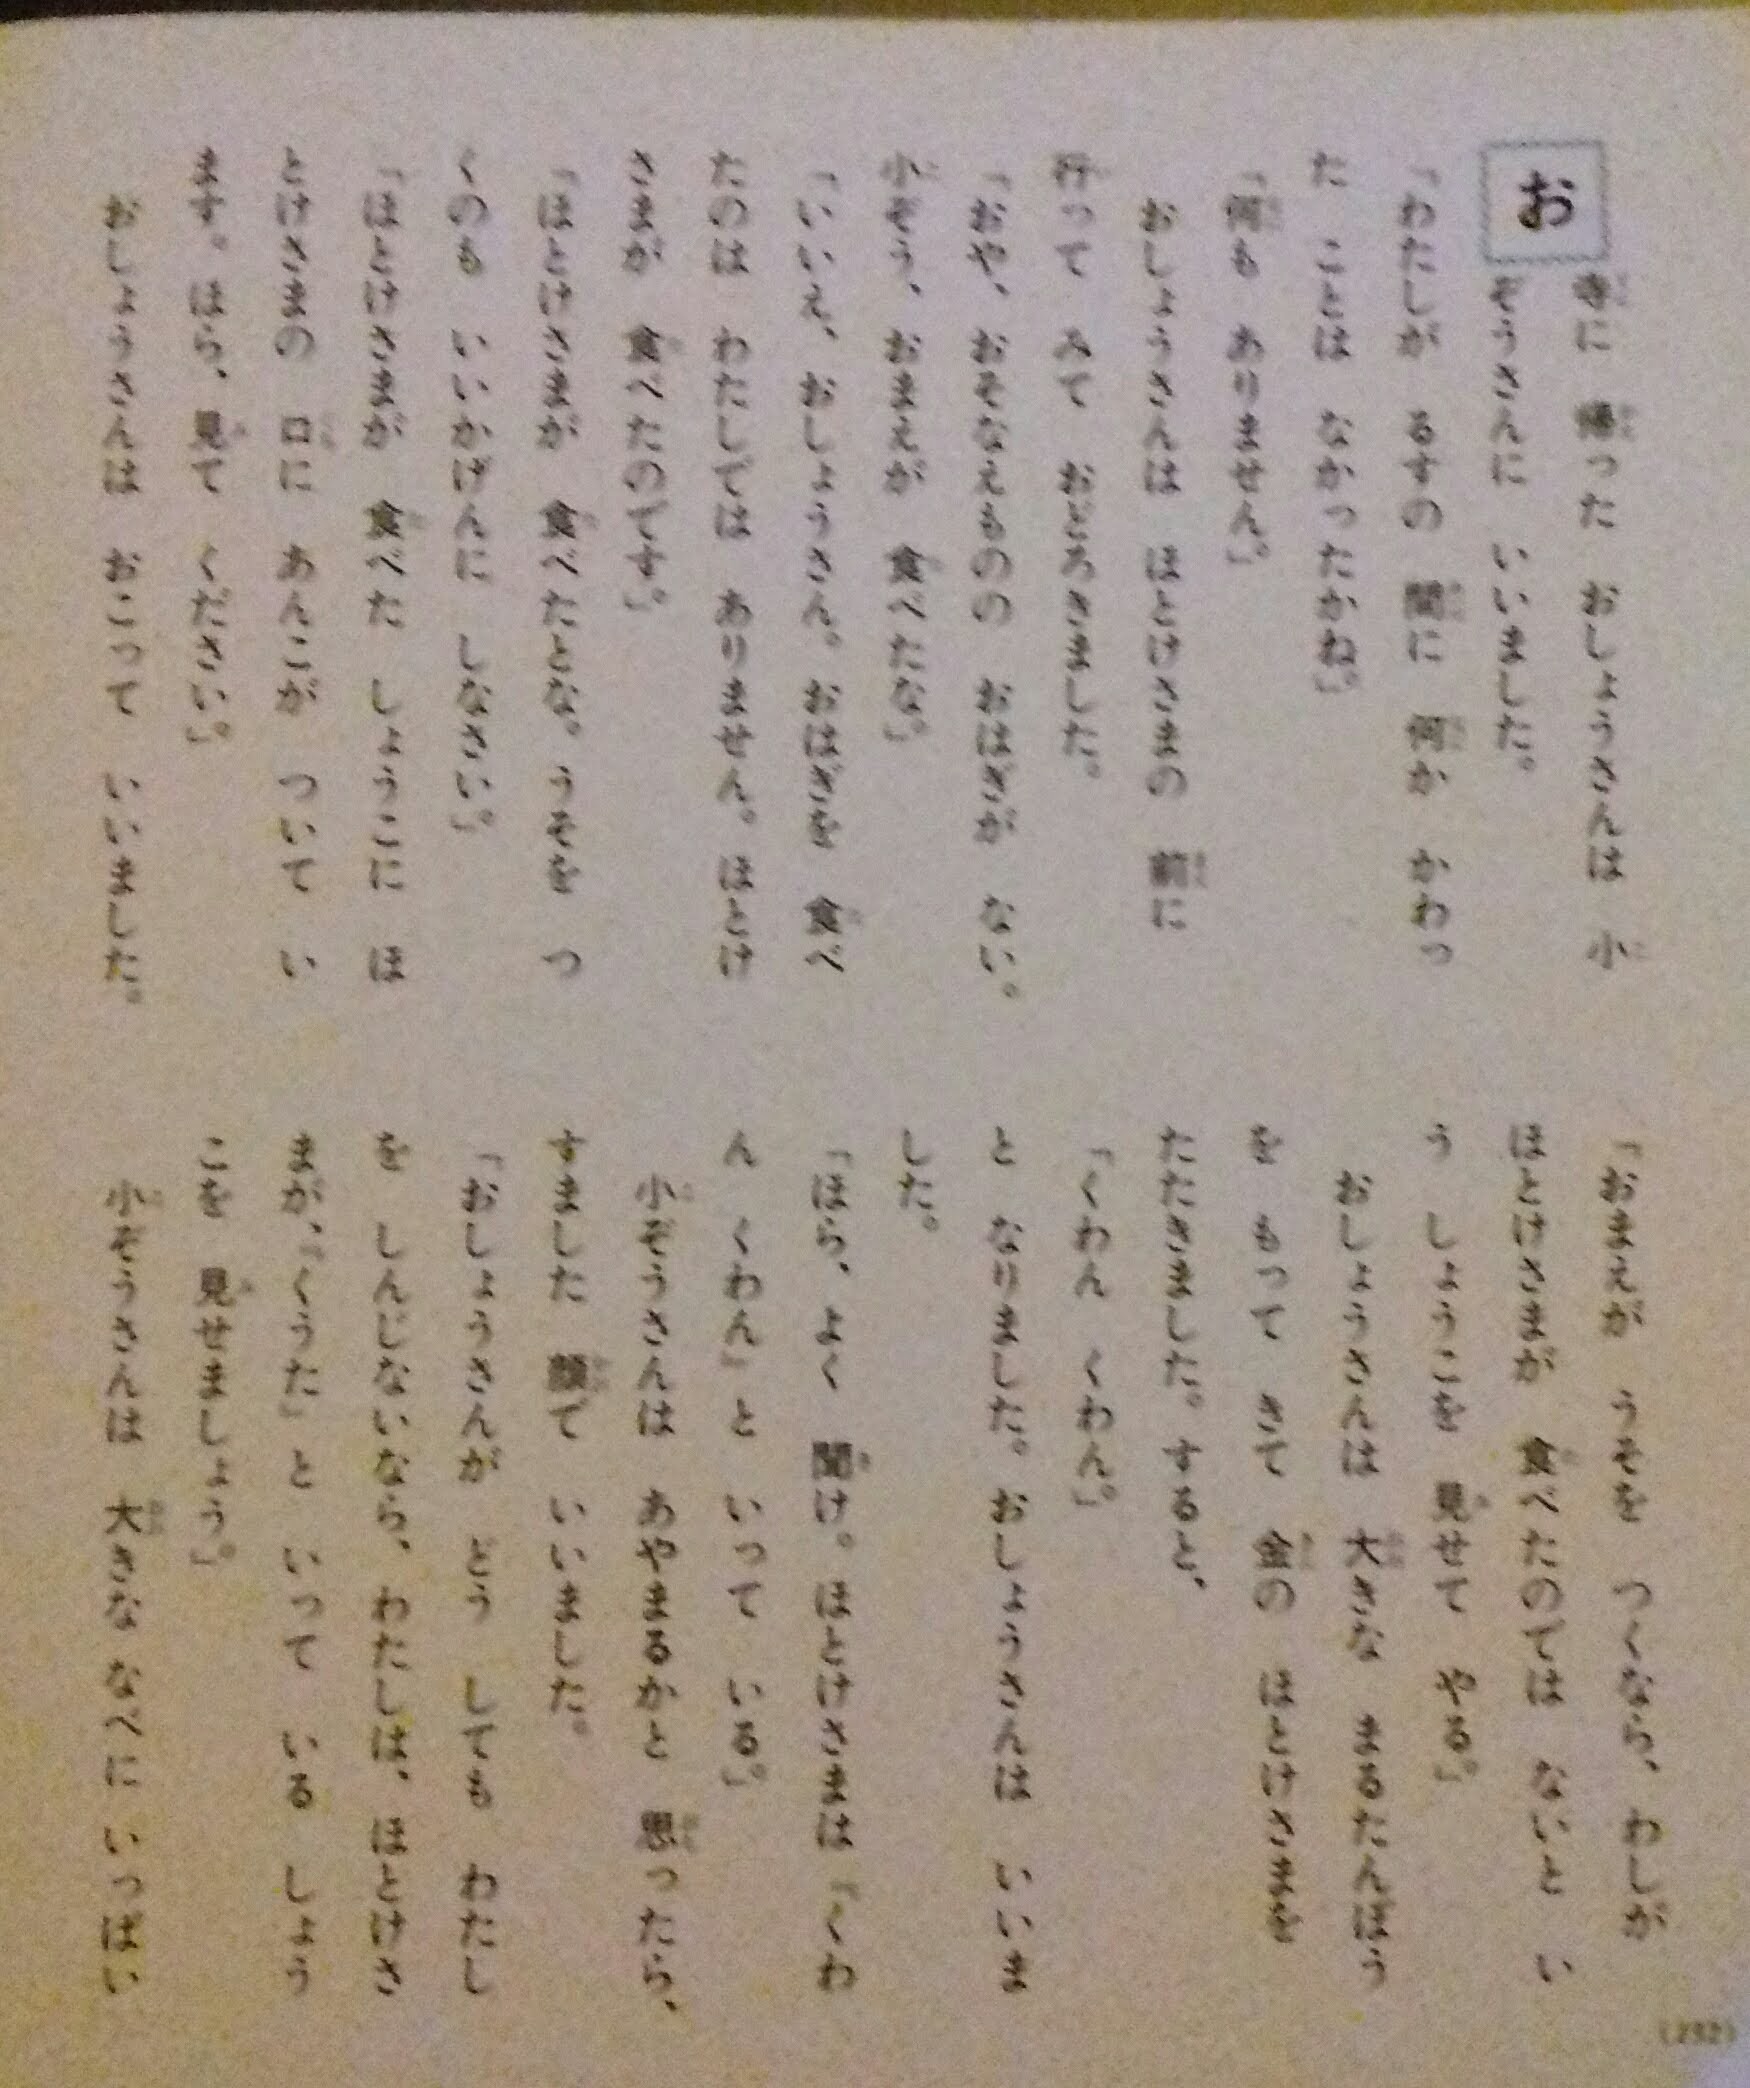 お寺に 帰った おしょうさんは 小
ぞうさんに いいました。
「わたしが るすの 間に 何か かわっ
た ことは なかったかね。」
「何も ありません。」
おしょうさんは ほとけさまの 前に
行って みて おどろきました。
「おや、おそなえものの おはぎが ない。
小ぞう、おまえが 食べたな。」
「いいえ、おしょうさん。おはぎを 食べ
たのは わたしでは ありません。ほとけ
さまが 食べたのです。」
「ほとけさまが 食べたとな。うそを つ
くのも いいかげんに しなさい。」
「ほとけさまが 食べた しょうこに ほ
とけさまの 口に あんこが ついて い
ます。ほら、見て ください。」
おしょうさんは おこって いいました。
「おまえが うそを つくなら、わしが
ほとけさまが 食べたのでは ないと い
う しょうこを 見せて やる。」
おしょうさんは 大きな まるたんぼう
を もって きて 金の ほとけさまを
たたきました。すると、
「くわん くわん。」
と なりました。おしょうさんは いいま
した。
「ほら、よく 聞け。ほとけさまは『くわ
ん くわん』と いって いる。」
小ぞうさんは あやまるかと 思ったら、
すました 顔で いいました。
「おしょうさんが どう しても わたし
を しんじないなら、わたしは、ほとけさ
まが、『くうた』と いって いる しょう
こを 見せましょう。」
小ぞうさんは 大きな なべに いっぱい
(232)